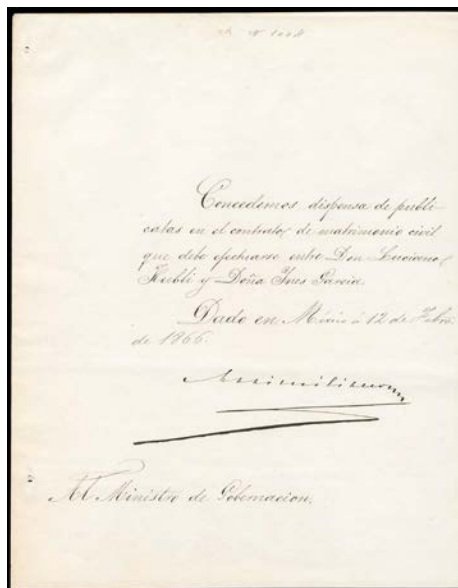 Nº 1008
Concedemos dispensa de publi-
catas en el contrato de matrimonio civil
que debe efectuarse entre Don Luciano
Kubli y Doña Ines Garcia.
Dado en Méjico á 12 de Febro.
de 1866.
Maximiliano
Al Ministro de Gobernacion.